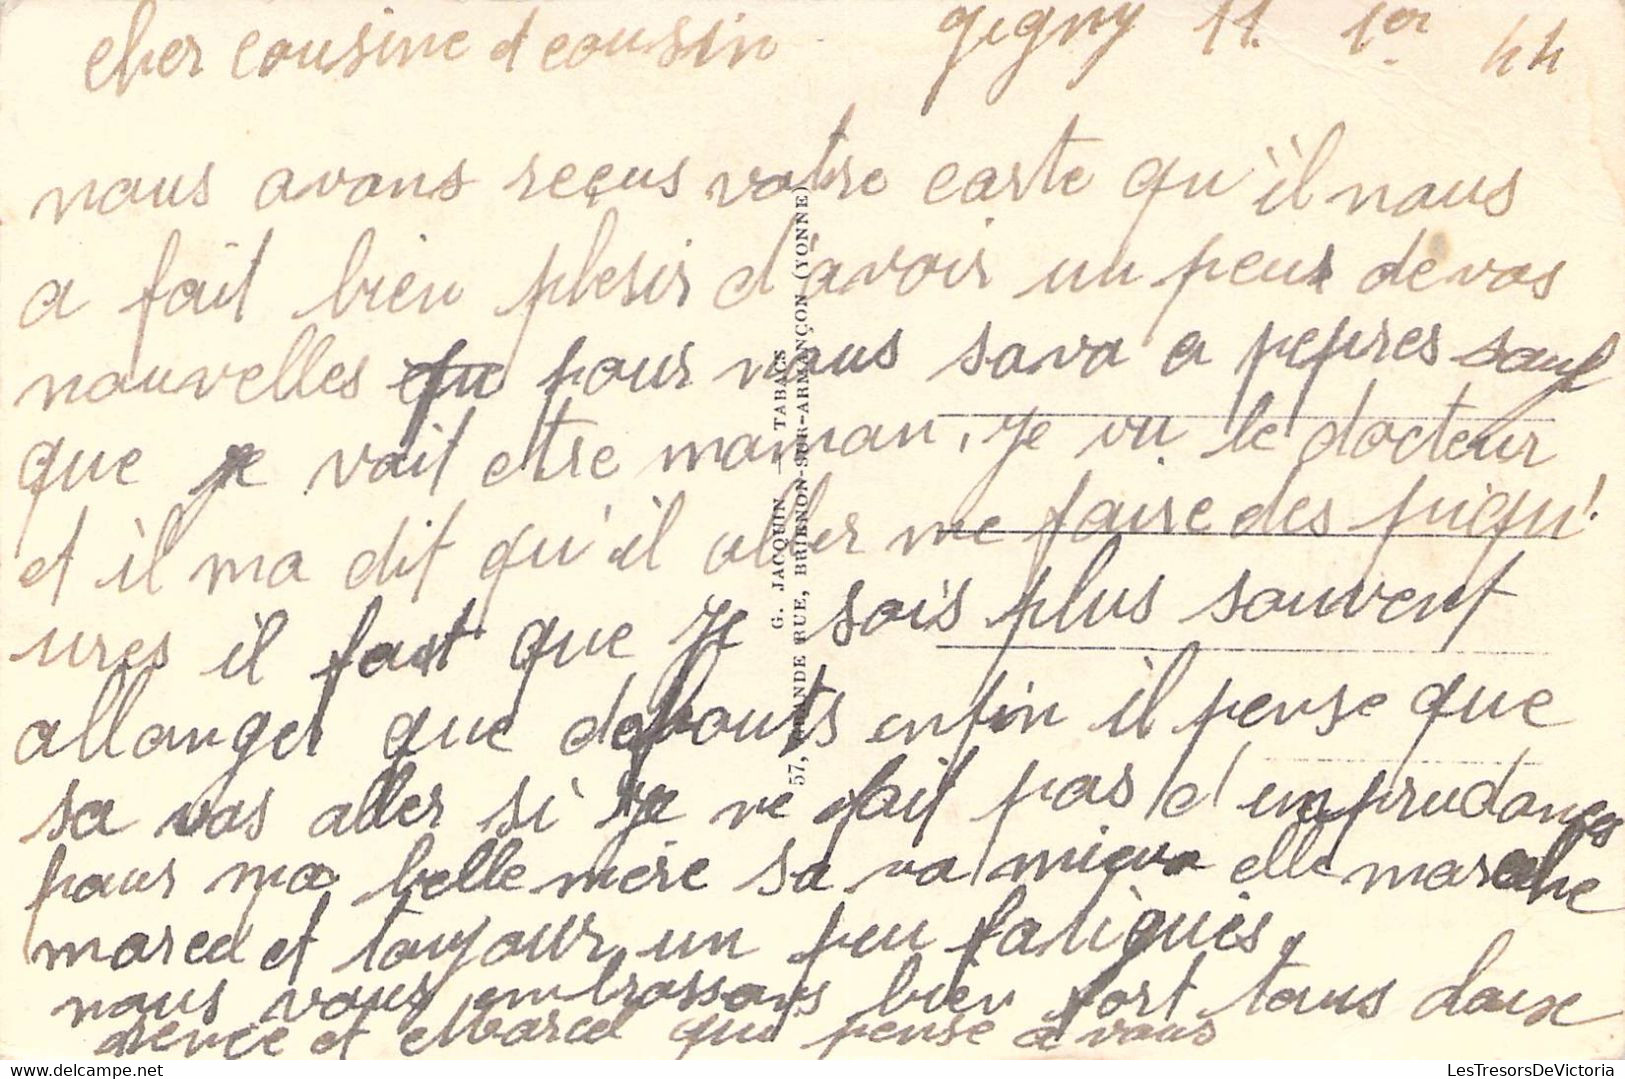 cher cousine et cousin gigny 11. 1er 44
nous avons reçus votre carte qu'il nous
a fait bien plesir d'avoir un peux de vos
nouvelles que pour nous sava a pepres sauf
que je vait etre maman, je vu le docteur
et il ma dit qu'il aller me faire des piqu'
ures il faut que je sois plus souvent
allonger que debouts enfin il pense que
sa vas aller si je ne fait pas d'imprudances
pour ma belle mère sa va mieux elle marche
marcel et toujour un peu fatigués,
nous vous embrassons bien fort tous deux
et Marcel qui pense a vous
G. JACQUIN — TABACS
57, GRANDE RUE, BRIENON-SUR-ARMANÇON (YONNE)
LesTresorsDeVictoria